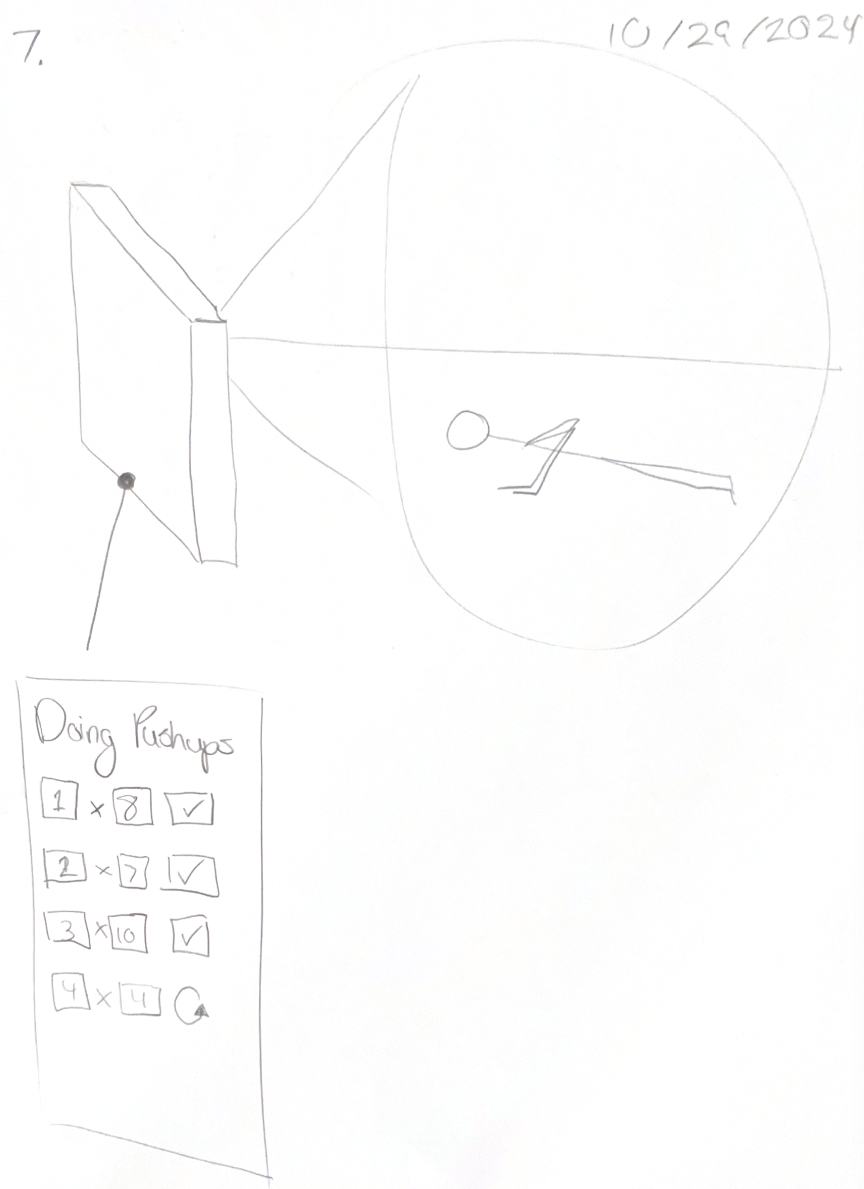 7.
10/29/2024
Doing Pushups
1 × 8 ✓
2 × 7 ✓
3 × 10 ✓
4 × 4